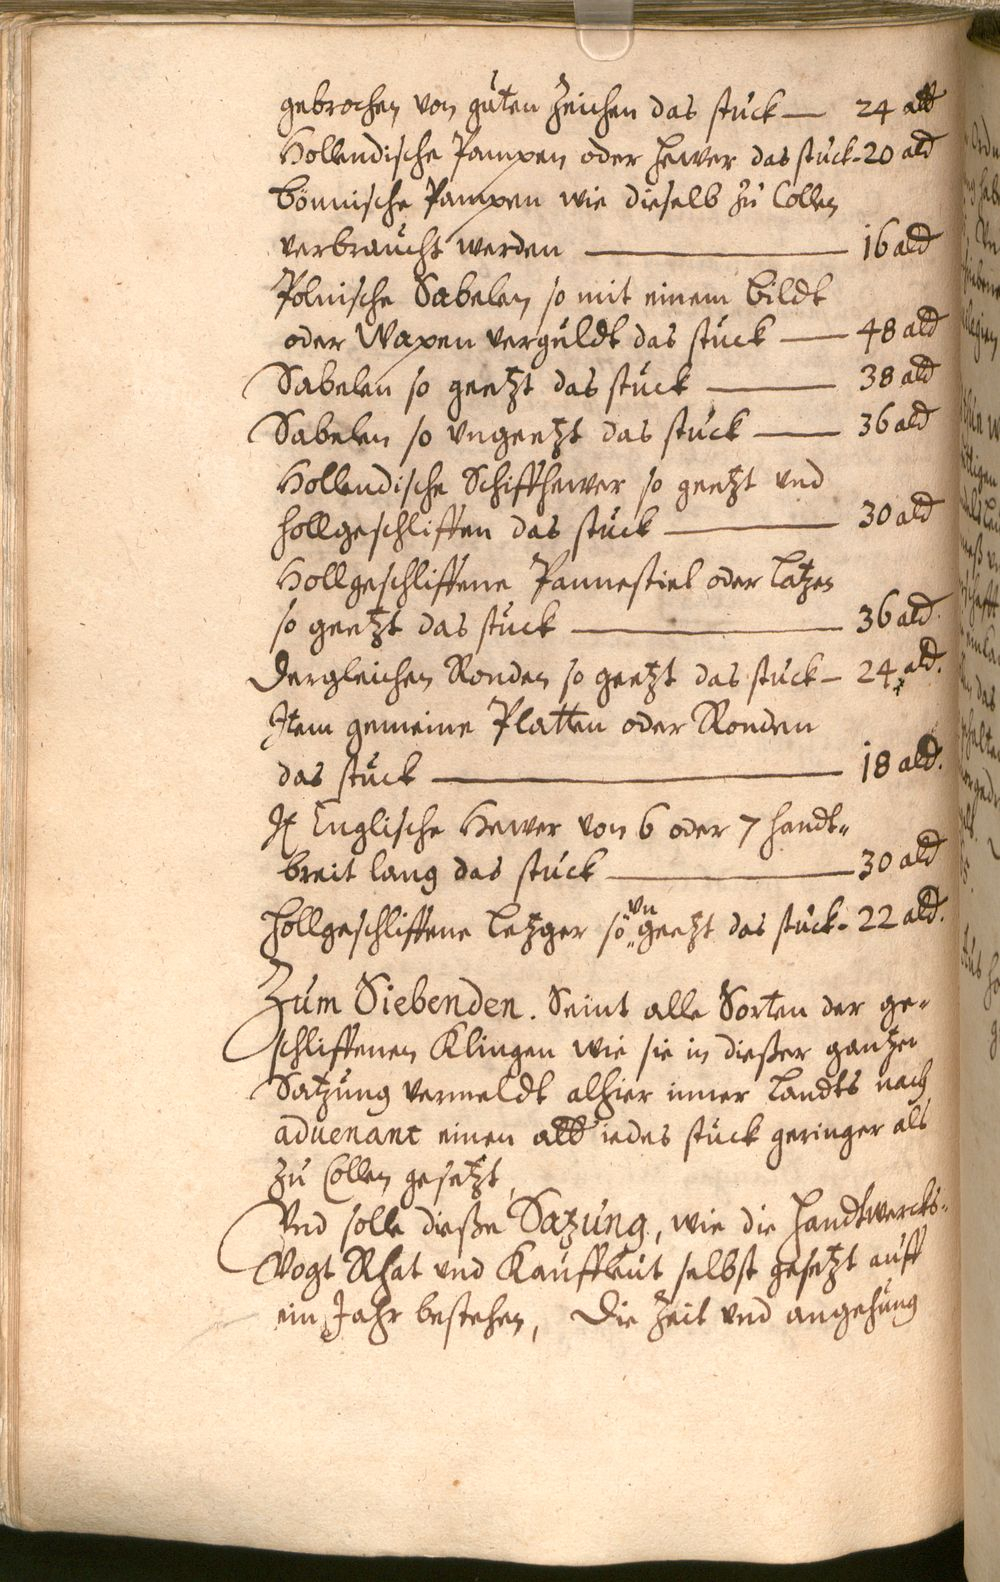 gebrochen von guten Zeichen das stuck — 24 alb
Hollendische Pampen oder hewer das stuck - 20 alb
bönnische Pampen wie dieselb zu Collen
verbraucht werden — 16 alb
Polnische Sabelen so mit einem bildt
oder Wapen verguldt das stuck — 48 alb
Sabelen so geetzt das stuck — 38 alb
Sabelen so vngeetzt das stuck — 36 alb
Hollendische Schiffhewer so geetzt vnd
hollgeschliffen das stuck — 30 alb
Hollgeschliffene Pannestiel oder Latzen
so geetzt das stuck — 36 alb.
Dergleichen Ronden so geetzt das stuck — 24 alb.
Item gemeine Platten oder Ronden
das stuck — 18 alb.
It Englische Hewer von 6 oder 7 handt=
breit lang das stuck — 30 alb
hollgeschliffene Letzger so vngeetzt das stuck - 22 alb.
Zum Siebenden. Seint alle Sorten der ge=
schliffenen Klingen wie sie in dießer gantzen
Satzung vermeldt alhier inner Landts nach
aduenant einen alb iedes stuck geringer als
zu Collen gesetzt,
Vnd solle dieße Satzung, wie die handtwercks=
Vogt Rhat vnd Kauffleut selbst gesetzt auff
ein Jahr bestehen, Die Zeit vnd angehung